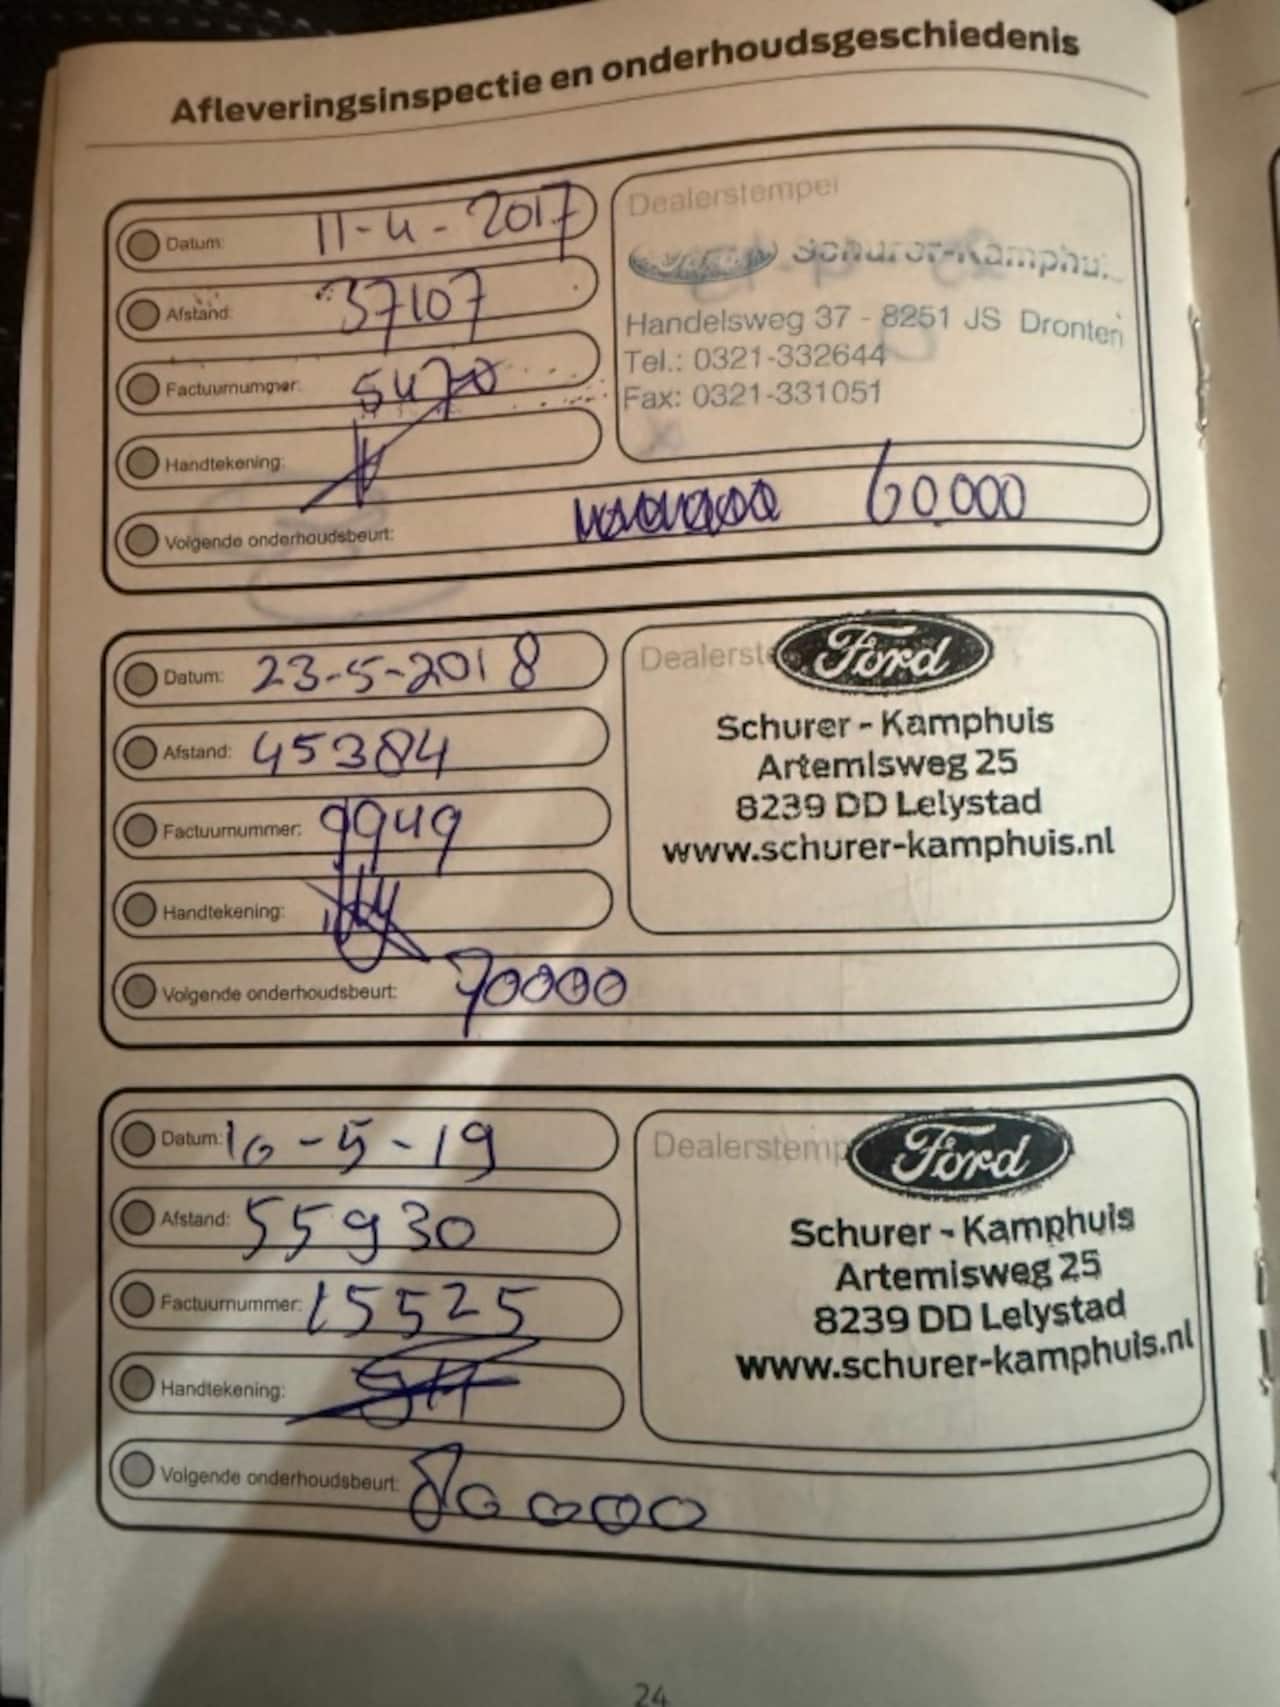 Afleveringsinspectie en onderhoudsgeschiedenis
Datum: 11-4-2017
Afstand: 37107
Factuurnummer: 5470
Handtekening:
Volgende onderhoudsbeurt: 60.000
Dealerstempel
Schurer-Kamphuis
Handelsweg 37 - 8251 JS Dronten
Tel.: 0321-332644
Fax: 0321-331051
Datum: 23-5-2018
Afstand: 45384
Factuurnummer: 9949
Handtekening:
Volgende onderhoudsbeurt: 70000
Ford
Schurer - Kamphuis
Artemisweg 25
8239 DD Lelystad
www.schurer-kamphuis.nl
Datum: 16-5-19
Afstand: 55930
Factuurnummer: 15525
Handtekening:
Volgende onderhoudsbeurt: 80000
Ford
Schurer - Kamphuis
Artemisweg 25
8239 DD Lelystad
www.schurer-kamphuis.nl
24